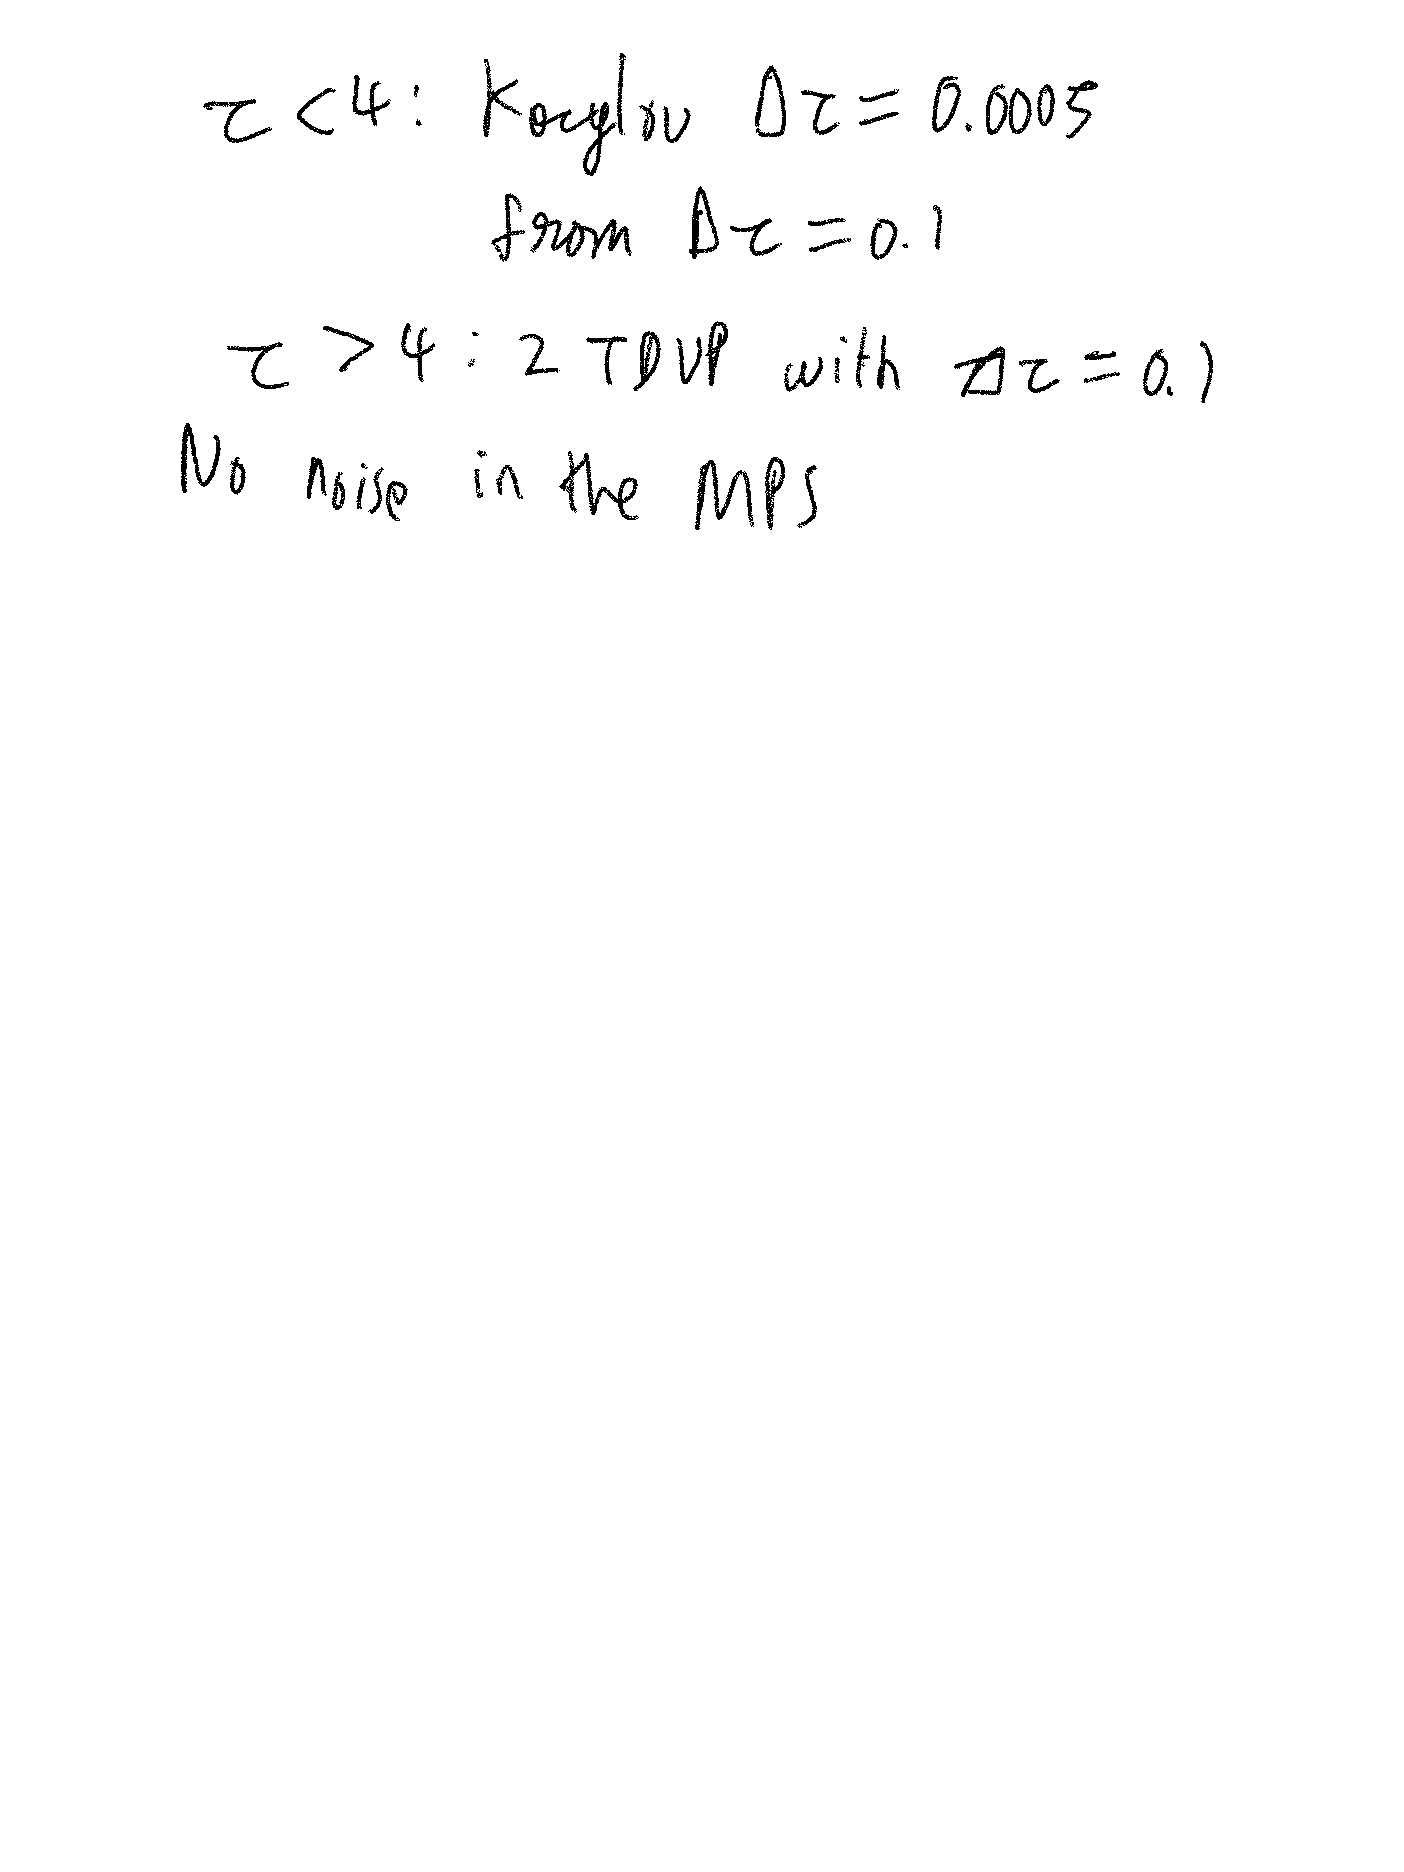 τ < 4 : Kocylov Δτ = 0.0005
from Δτ = 0.1
τ > 4 : 2 TDVP with Δτ = 0.1
No noise in the MPS